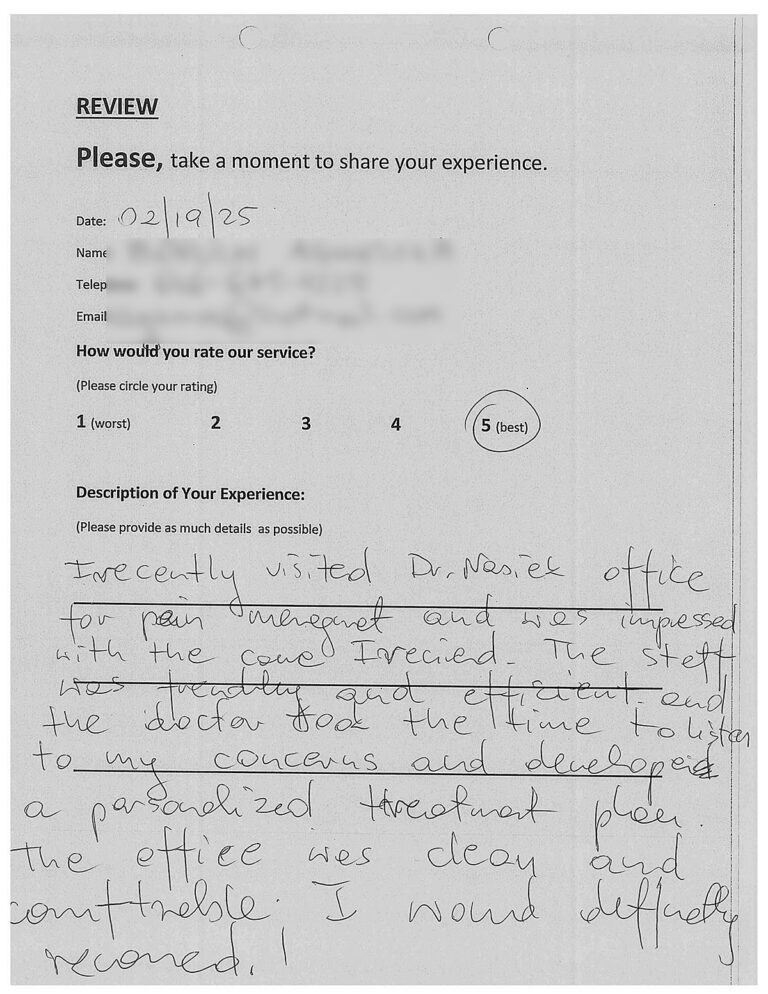 REVIEW
Please, take a moment to share your experience.
Date: 02/19/25
Name
Telep
Email
How would you rate our service?
(Please circle your rating)
1 (worst) 2 3 4 5 (best)
Description of Your Experience:
(Please provide as much details as possible)
I recently visited Dr. Nasiek office
for pain and was impressed
with the I The staff
was and efficient. and
the doctor the time to listen
to my concerns and developed
a plan.
the office was clean and
I